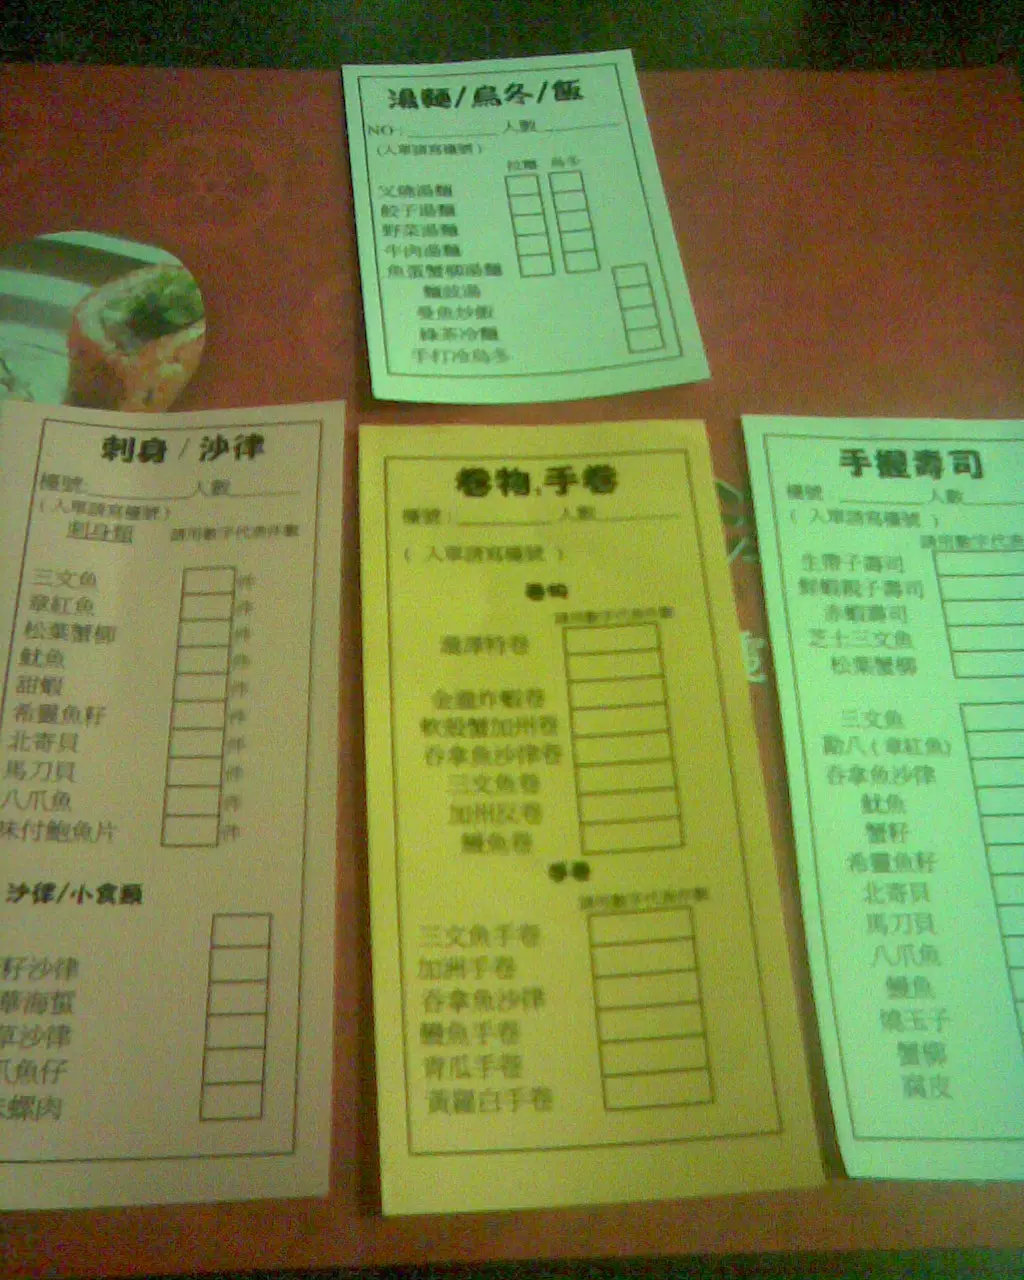 湯麵/烏冬/飯
NO: 人數
(入單請寫檯號)
拉麵 烏冬
叉燒湯麵
餃子湯麵
野菜湯麵
牛肉湯麵
魚蛋蟹柳湯麵
麵豉湯
曼魚炒飯
綠茶冷麵
手打冷烏冬
刺身/沙律
檯號: 人數
(入單請寫檯號)
刺身類 請用數字代表件數
三文魚 件
章紅魚 件
松葉蟹柳 件
魷魚 件
甜蝦 件
希靈魚籽 件
北寄貝 件
馬刀貝 件
八爪魚 件
味付鮑魚片 件
沙律/小食類
籽沙律
華海蜇
草沙律
爪魚仔
螺肉
卷物,手卷
檯號: 人數
( 入單請寫檯號 )
卷物
請用數字代表件數
炸蝦卷
軟殼蟹加州卷
吞拿魚沙律卷
三文魚卷
加州反卷
鰻魚卷
手卷
請用數字代表件數
三文魚手卷
加洲手卷
吞拿魚沙律
鰻魚手卷
青瓜手卷
黃蘿白手卷
手握壽司
檯號: 人數
( 入單請寫檯號 )
請用數字代表
生帶子壽司
鮮蝦親子壽司
赤蝦壽司
芝士三文魚
松葉蟹柳
三文魚
勘八(章紅魚)
吞拿魚沙律
魷魚
蟹籽
希靈魚籽
北寄貝
馬刀貝
八爪魚
鰻魚
燒玉子
蟹柳
腐皮